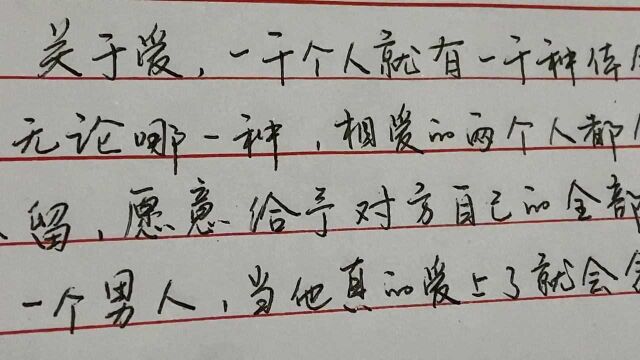 关于爱，一千个人就有一千种体
无论哪一种，相爱的两个人都
留，愿意给予对方自己的全部
一个男人，当他真的爱上了就会